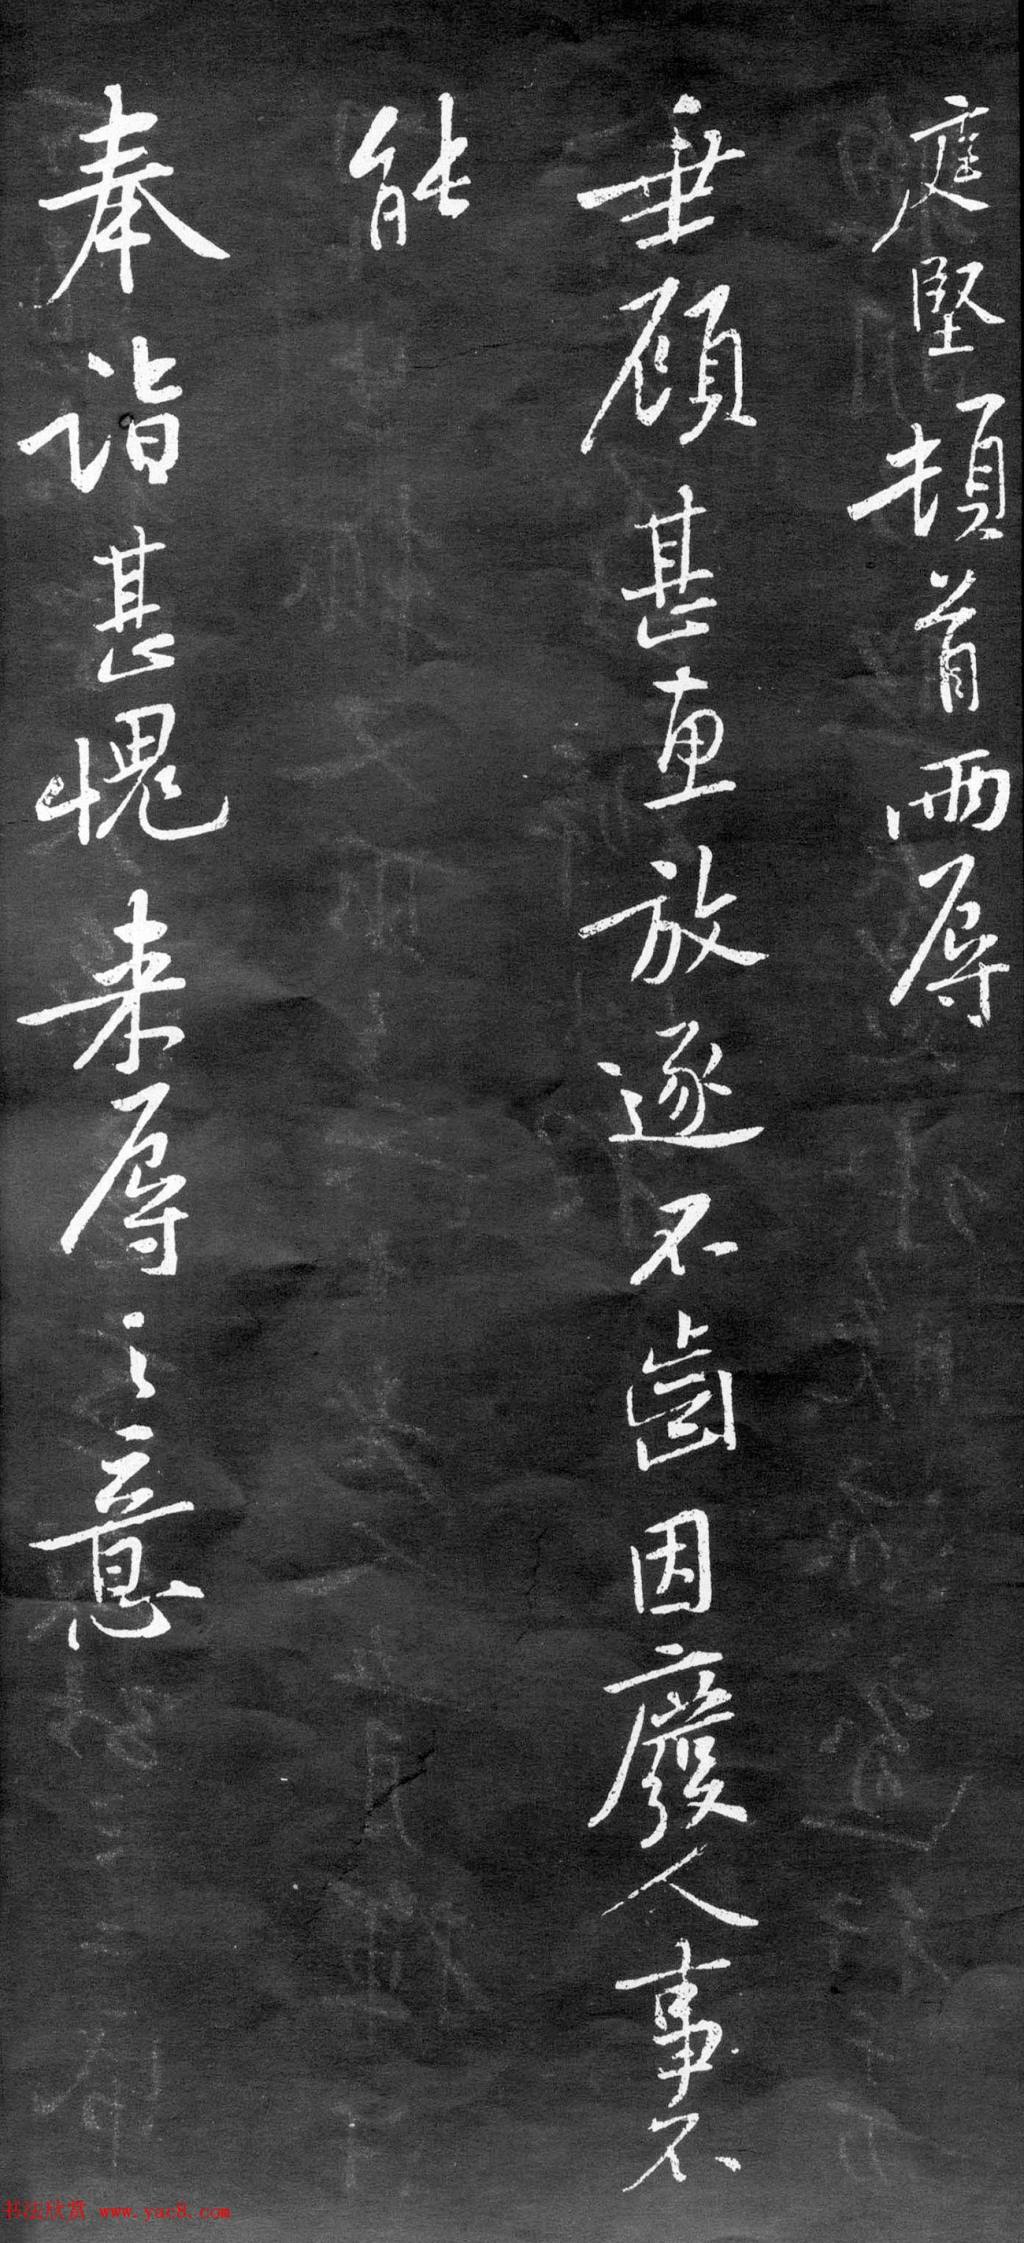 庭堅頓首兩辱
垂顧甚惠放逐不齒因廢人事不
能
奉詣甚愧来辱之意
书法欣赏 www.yac8.com